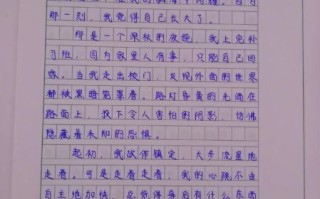 那一刻，我觉得自己长大了。
那是一个深秋的夜晚，我上完补
习班，因为家里人有事，只能自己回
家。当我走出校门，发现外面的世界
都被黑暗笼罩着。路灯昏黄的光洒在
路面上，投下令人害怕的阴影，仿佛
隐藏着未知的恐惧。
起初，我故作镇定，大步流星地
走着。可是走着走着，我的心跳不由
自主地加快，总觉得身后有什么东西